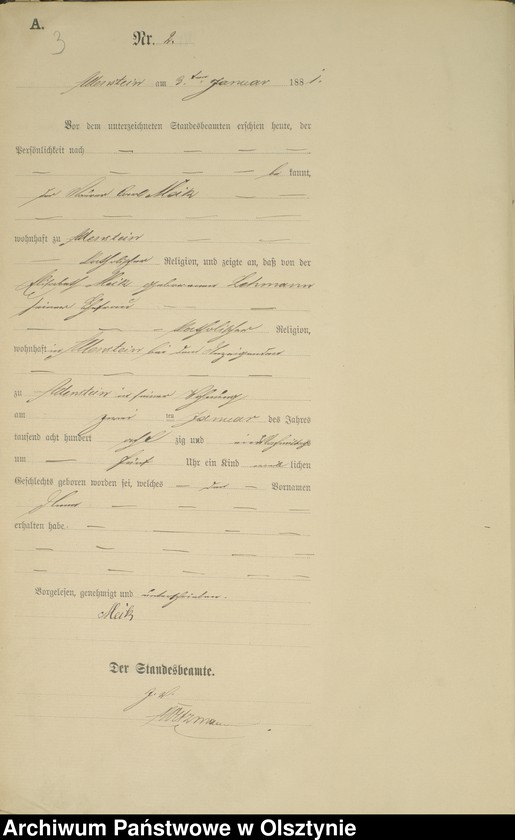 A.
3
Nr. 2.
Allenstein am 3ten Januar 1881.
Vor dem unterzeichneten Standesbeamten erschien heute, der
Persönlichkeit nach — — — —
— — — — be kannt,
der Carl Meik — —
wohnhaft zu Allenstein — —
— katholischer Religion, und zeigte an, daß von der
Elisabeth Meik geborenen Lehmann
seiner Ehefrau — —
— — — katholischer Religion,
wohnhaft in Allenstein bei dem Anzeigenden
zu Allenstein in seiner Wohnung
am zwei ten Januar des Jahres
tausend acht hundert acht zig und
um — fünf Uhr ein Kind lichen
Geschlechts geboren worden sei, welches — den — Vornamen
erhalten habe. — — — —
Vorgelesen, genehmigt und unterschrieben.
Meik
Der Standesbeamte.
Archiwum Państwowe w Olsztynie